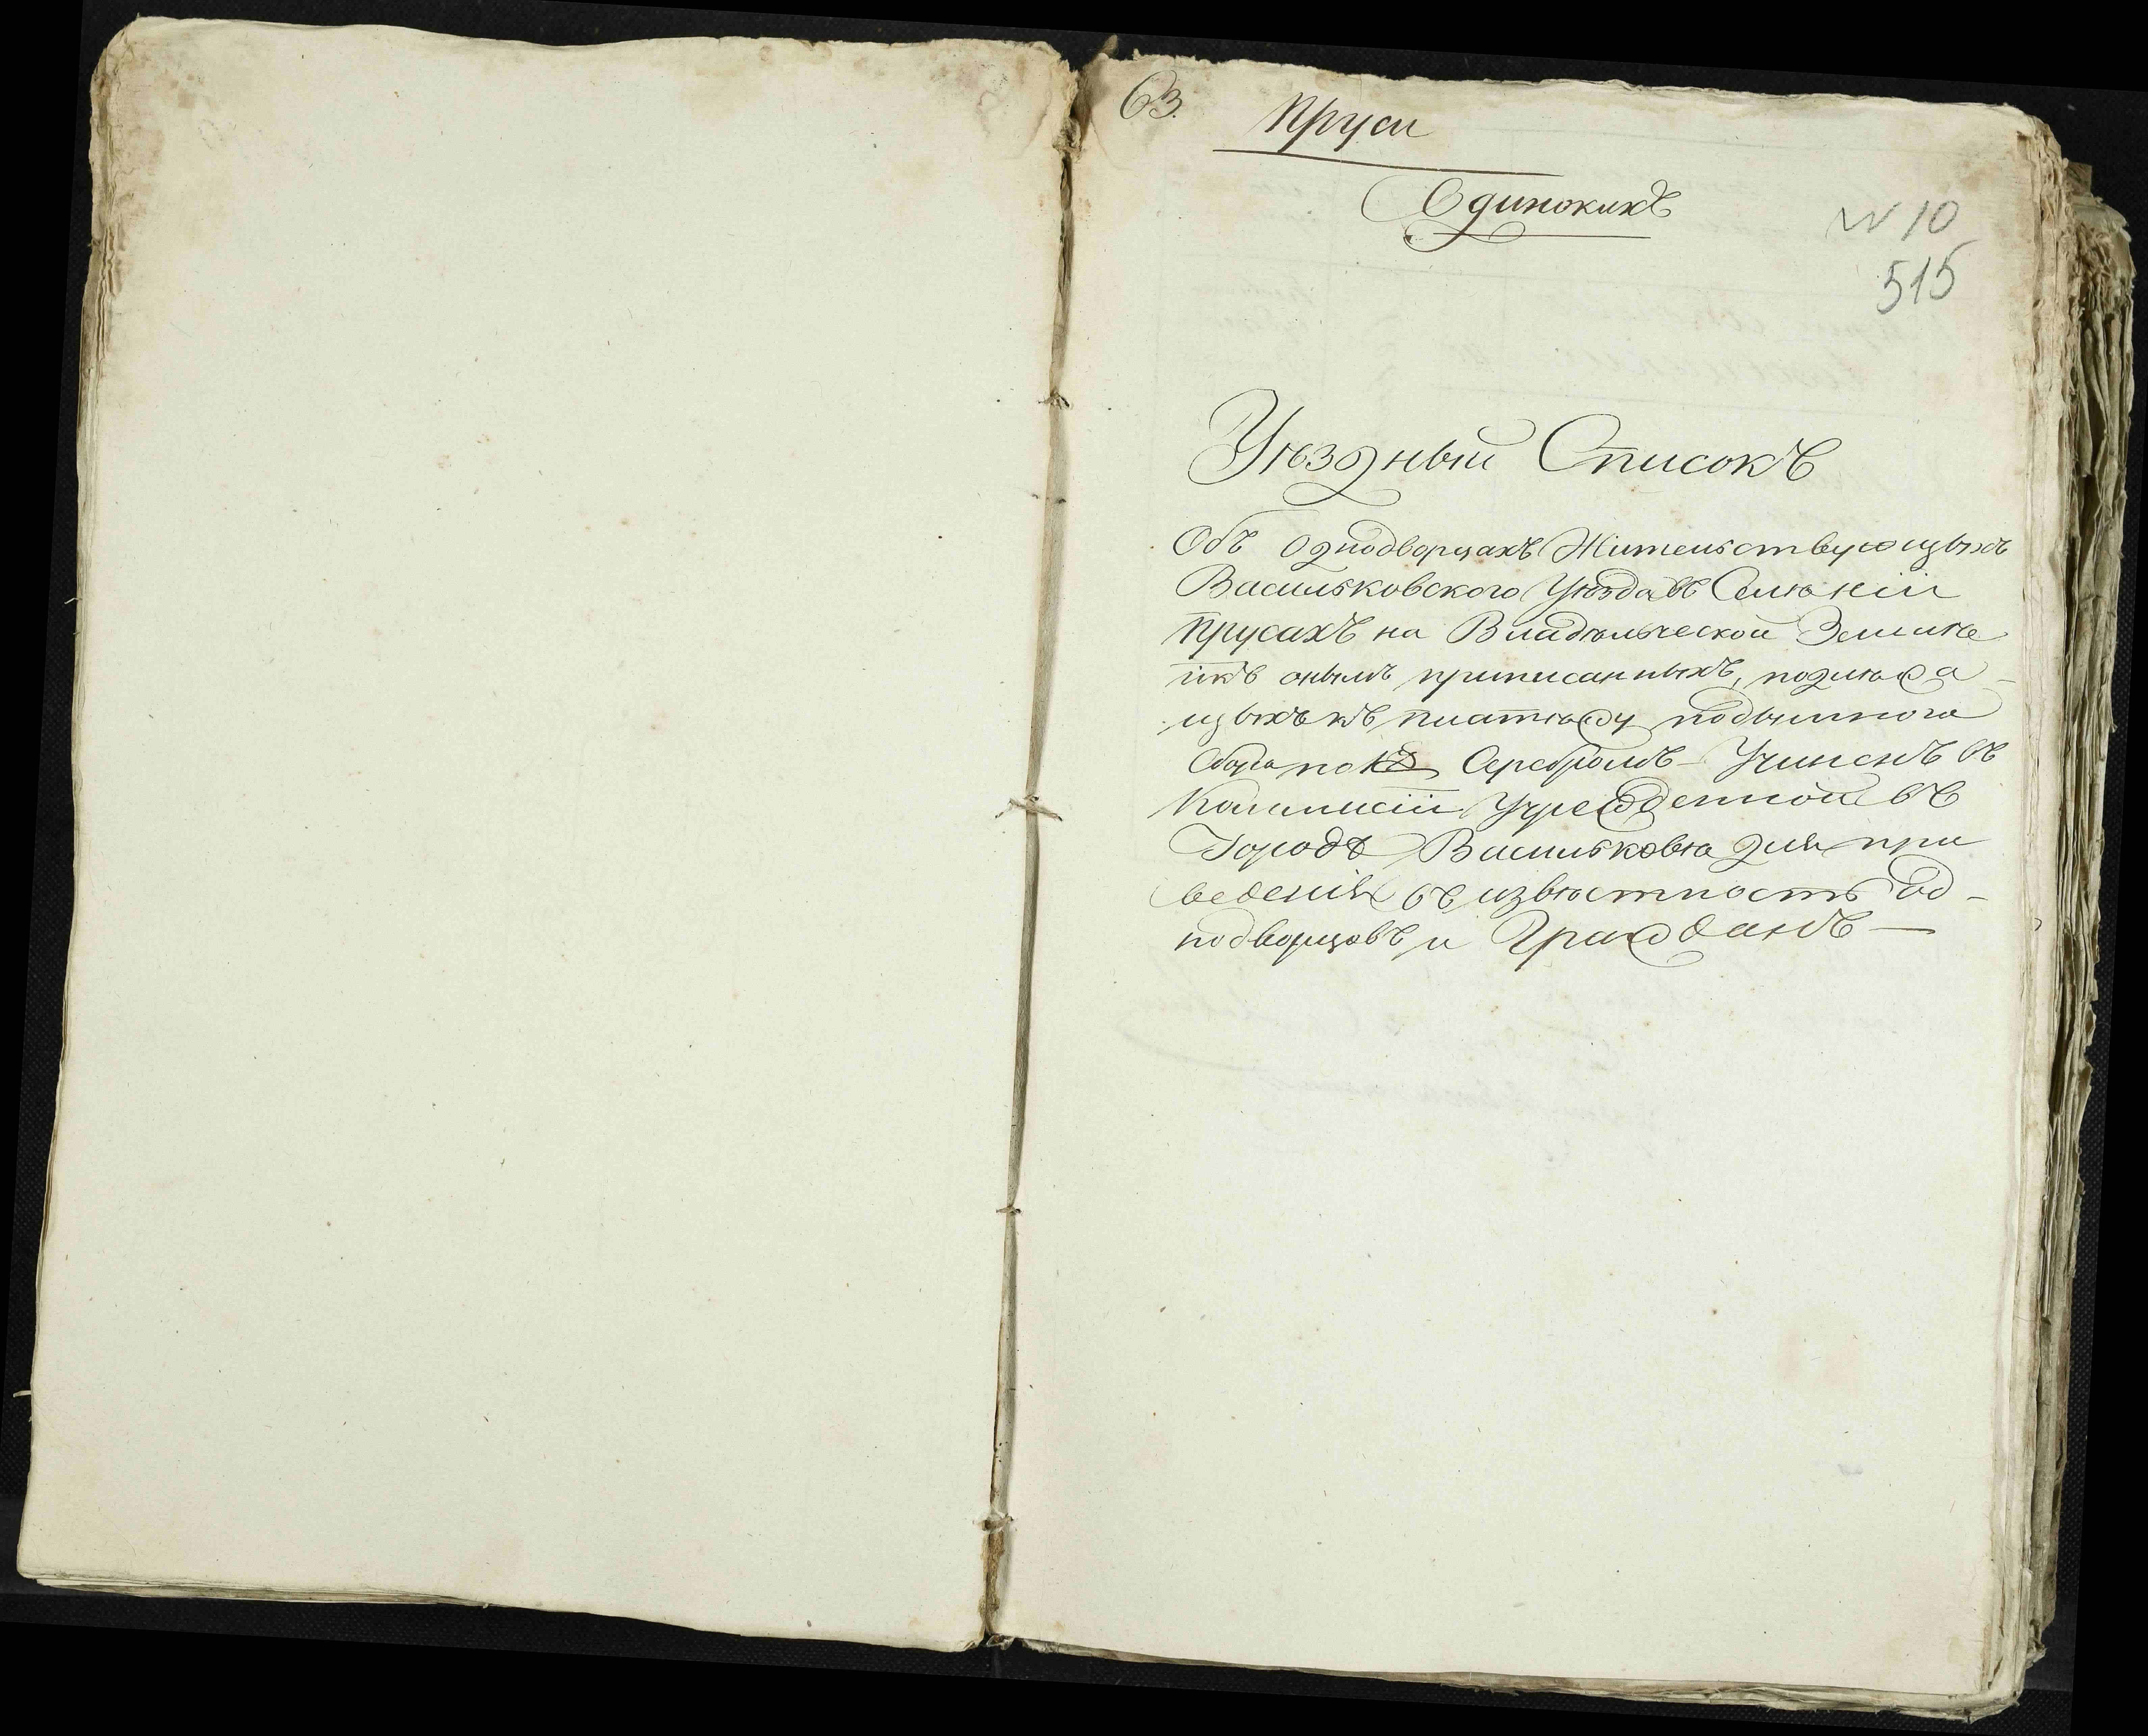 63.
Пруси
Одинокихъ
N 10
515
Уѣздный Списокъ
Объ Однодворцахъ Жительствующихъ
Васильковского Уѣзда въ Селѣніи
Прусахъ на Владѣльческой Землѣ
икъ онымъ приписанныхъ, подлѣжа-
щыхъ къ платѣжу подымного
Сбора по Серебромъ Учиненъ въ
Коммисіи Учрежденной въ
Городѣ Васильковѣ для при
веденія въ извѣстность Од-
нодворцовъ и Гражданъ —